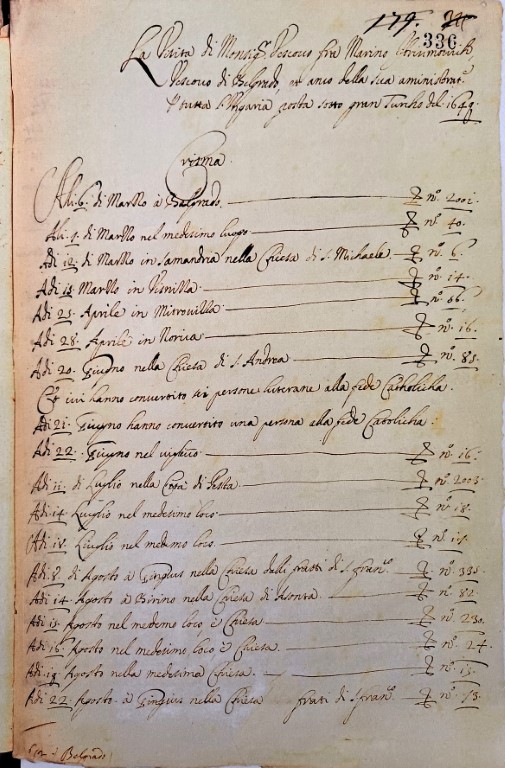 179.
336
La Visita di Monsig.r Vescovo frà Merino
Vescovo di Belgrado, et anco della sua aministrat.e
p tutta l'Ugaria posta sotto gran Turcho del 1649
Crisma
Alli 6. di Martio à Belgrado. n.o 2001.
Alli 9. di Martio nel medesimo luogo n.o 40.
Adi 12. di Martio in Samandria nella Chiesa di S. Michaele n.o 6.
Adi 13 Martio in n.o 14.
Adi 25. Aprile in Mitrovilla n.o 66.
Adi 28. Aprile in Noriva n.o 16.
Adi 20. Giugno nella Chiesa di S. Andrea n.o 85.
Et ivi hanno convertito persone luterane alla fede Catholicha.
Adi 21. Giugno hanno convertito una persona alla fede Catolicha.
Adi 22. Giugno nel n.o 16.
Adi 11. di Luglio nella di Pesta n.o 2003
Adi 14. Luglio nel medesimo loco n.o 18.
Adi 18. Luglio nel medemo loco n.o 15.
Adi 8. di Agosto à Gingius nella Chiesa delli fratti di S. fran.o n.o 335.
Adi 14. Agosto à nella Chiesa di n.o 82.
Adi 15. Agosto nel medemo loco è Chiesa n.o 230.
Adi 16. Agosto nel medesimo loco è Chiesa n.o 24.
Adi 19. Agosto nella medesima Chiesa. n.o 13.
Adi 22. Agosto à Gingius nella Chiesa frati di S. fran.o n.o 73.
Belgrado